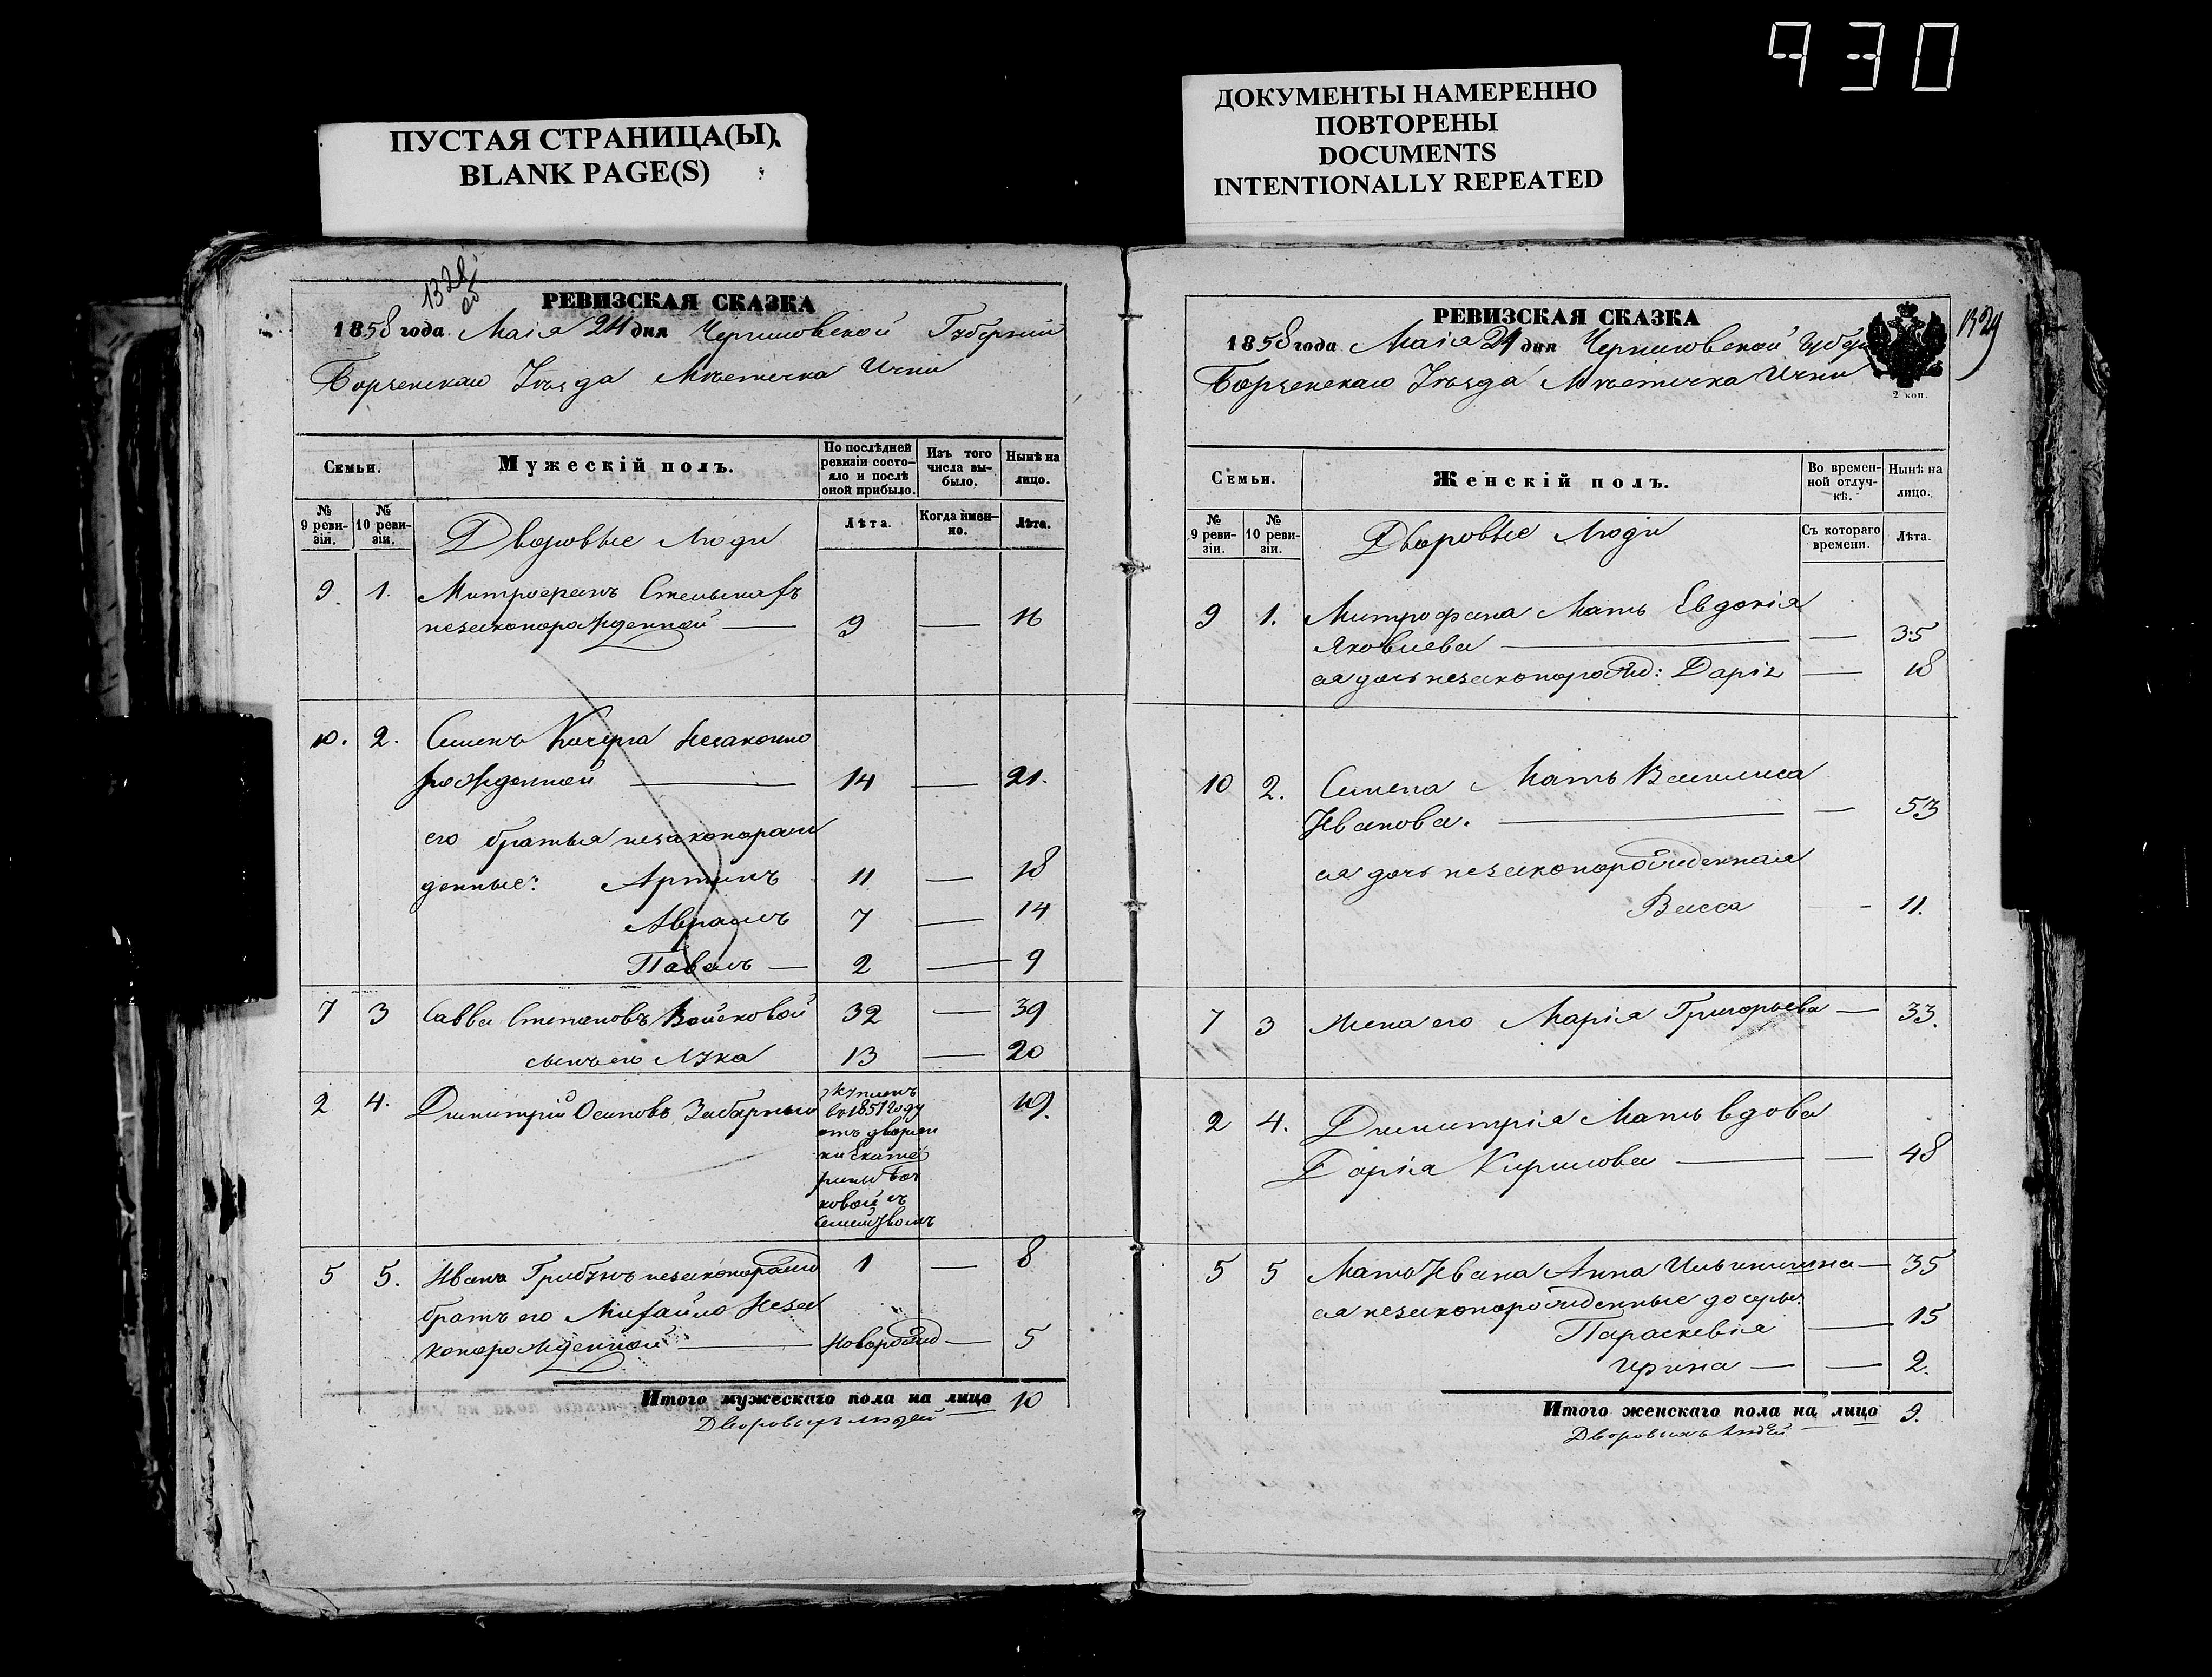 930
ПУСТАЯ СТРАНИЦА(Ы)
BLANK PAGE(S)
ДОКУМЕНТЫ НАМЕРЕННО
ПОВТОРЕНЫ
DOCUMENTS
INTENTIONALLY REPEATED
1328
об
РЕВИЗСКАЯ СКАЗКА
1858 года Маія 24 дня Черниговской Губерніи
Борзенскаго Уѣзда Мѣстечка Ични
Семьи.
Мужескій полъ.
По послѣдней ревизіи состояло и послѣ оной прибыло.
Изъ того числа выбыло.
Нынѣ на лицо.
№ 9 ревизіи.
№ 10 ревизіи.
Дворовые Люди
Лѣта.
Когда именно.
Лѣта.
9. 1. Митрофанъ Стельмахъ
незаконорожденной — 9 — 16
10. 2. Семенъ Кочерга Незаконно
рожденной — 14 — 21.
его братья незаконорож
денные: Артемъ 11 — 18
Аврамъ 7 — 14
Павелъ — 2 — 9
7 3 Савва Степановъ Войсковой 32 — 39
сынъ его Лука 13 — 20
2 4. Димитрій Осиповъ Забарный 19.
купленъ
в 1851 году
отъ дворян
ки Екате
рины
ковой съ
семействомъ
5 5. Иванъ Грибунъ незаконорожд 1 — 8
братъ его Михайло Неза
конорожденной — Новорожд — 5
Итого мужескаго пола на лицо 10
Дворовыхъ людей —
1329
РЕВИЗСКАЯ СКАЗКА
1858 года Маія 24 дня Черниговской Губер
Борзенскаго Уѣзда Мѣстечка Ични
2 коп.
Семьи.
Женскій полъ.
Во временной отлучкѣ.
Нынѣ на лицо.
№ 9 ревизіи.
№ 10 ревизіи.
Дворовые Люди
Съ котораго времени.
Лѣта.
9 1. Митрофана Мать Евдокія
Яковлева — — 35
ея дочь незаконорожд: Дарія — 18
10 2. Семена Мать Василиса
Иванова. — — 53
ея дочь незаконорожденная
Васса — 11.
7 3 Жена его Марія Григорьева — 33.
2 4. Димитрія Мать вдова
Дарія Кирилова — — 48
5 5 Мать Ивана Анна Ильинишна — 35
ея незаконорожденные дочери:
Параскевія — 15
Ирина — — 2.
Итого женскаго пола на лицо 9.
Дворовыхъ людей —